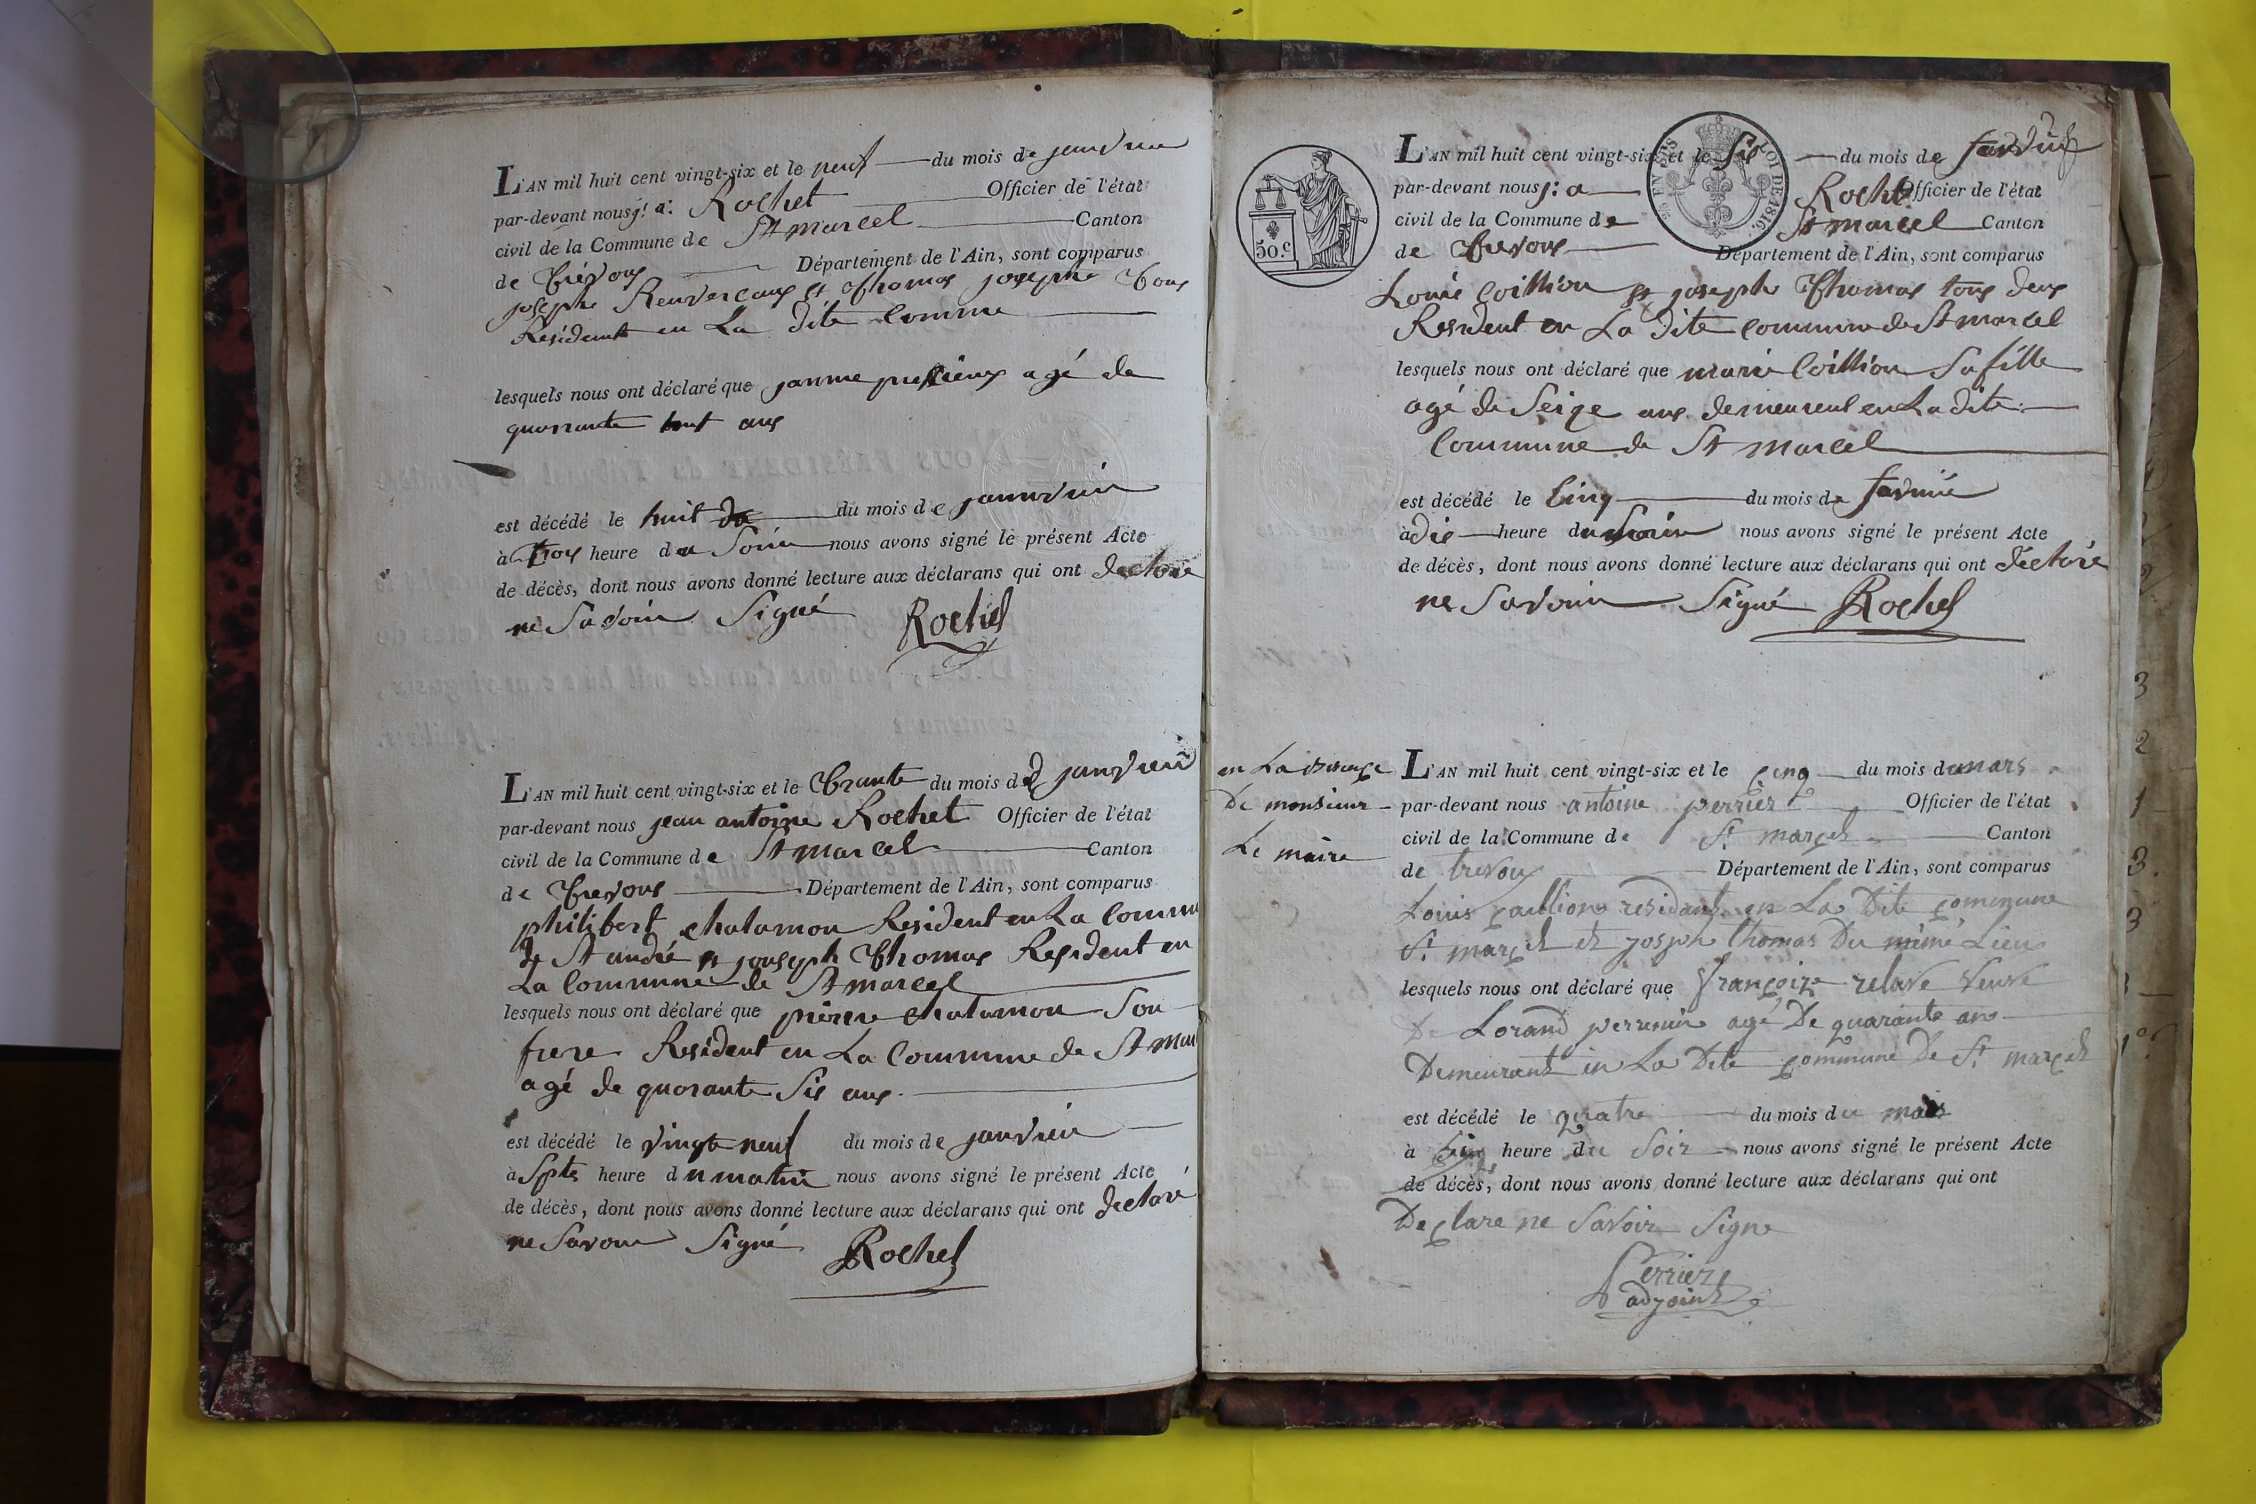 L'AN mil huit cent vingt-six et le neuf du mois de janvier
par-devant nous j: a: Rochet Officier de l'état
civil de la Commune de St marcel Canton
de Trévoux Département de l'Ain, sont comparus
joseph et Thomas joseph Tous
Résident en La dite Comme
lesquels nous ont déclaré que agé de
quarante ans
est décédé le huit du mois de
à trois heure du Soir nous avons signé le présent Acte
de décès, dont nous avons donné lecture aux déclarans qui ont declaré
ne Savoir Signé Rochet
L'AN mil huit cent vingt-six et le Trante du mois de janvier
par-devant nous jean antoine Rochet Officier de l'état
civil de la Commune de St marcel Canton
de Trevoux Département de l'Ain, sont comparus
philibert chatamon Resident en La Commune
de St andré et Thomas Resident en
La Commune de St marcel
lesquels nous ont déclaré que pierre chatamon Son
frere Resident en La Commune de St mar
agé de quarante Six ans
est décédé le vingt neuf du mois de janvier
à Spts heure du matin nous avons signé le présent Acte
de décès, dont nous avons donné lecture aux déclarans qui ont declaré
ne Savoir Signé Rochet
50.c
LOI DE 1816.
L'AN mil huit cent vingt-six et le Six du mois de
par-devant nous j: a Rochet Officier de l'état
civil de la Commune de St marcel Canton
de Trevoux Département de l'Ain, sont comparus
Louis Coillion et joseph Thomas tous deux
Resident en La dite commune de St marcel
lesquels nous ont déclaré que marie Coillion Sa fille
agé de Seize ans demeurent en La dite
Commune de St marcel
est décédé le Cinq du mois de
à dis heure du nous avons signé le présent Acte
de décès, dont nous avons donné lecture aux déclarans qui ont declaré
ne Savoir Signé Rochet
en La
De monsieur
Le maire
L'AN mil huit cent vingt-six et le çinq du mois de mars
par-devant nous antoine perrier Officier de l'état
civil de la Commune de St marçel Canton
de trevoux Département de l'Ain, sont comparus
Louis residant en La Dite commune
St marçel et Thomas Du même Lieu
lesquels nous ont déclaré que françoize relave veuve
De Lorand agé De quarante ans
Demeurant en La Dite commune De St marçel
est décédé le quatre du mois du mars
à heure du soir nous avons signé le présent Acte
de décès, dont nous avons donné lecture aux déclarans qui ont
Déclare ne Savoir Signe
Perrier
adjoint